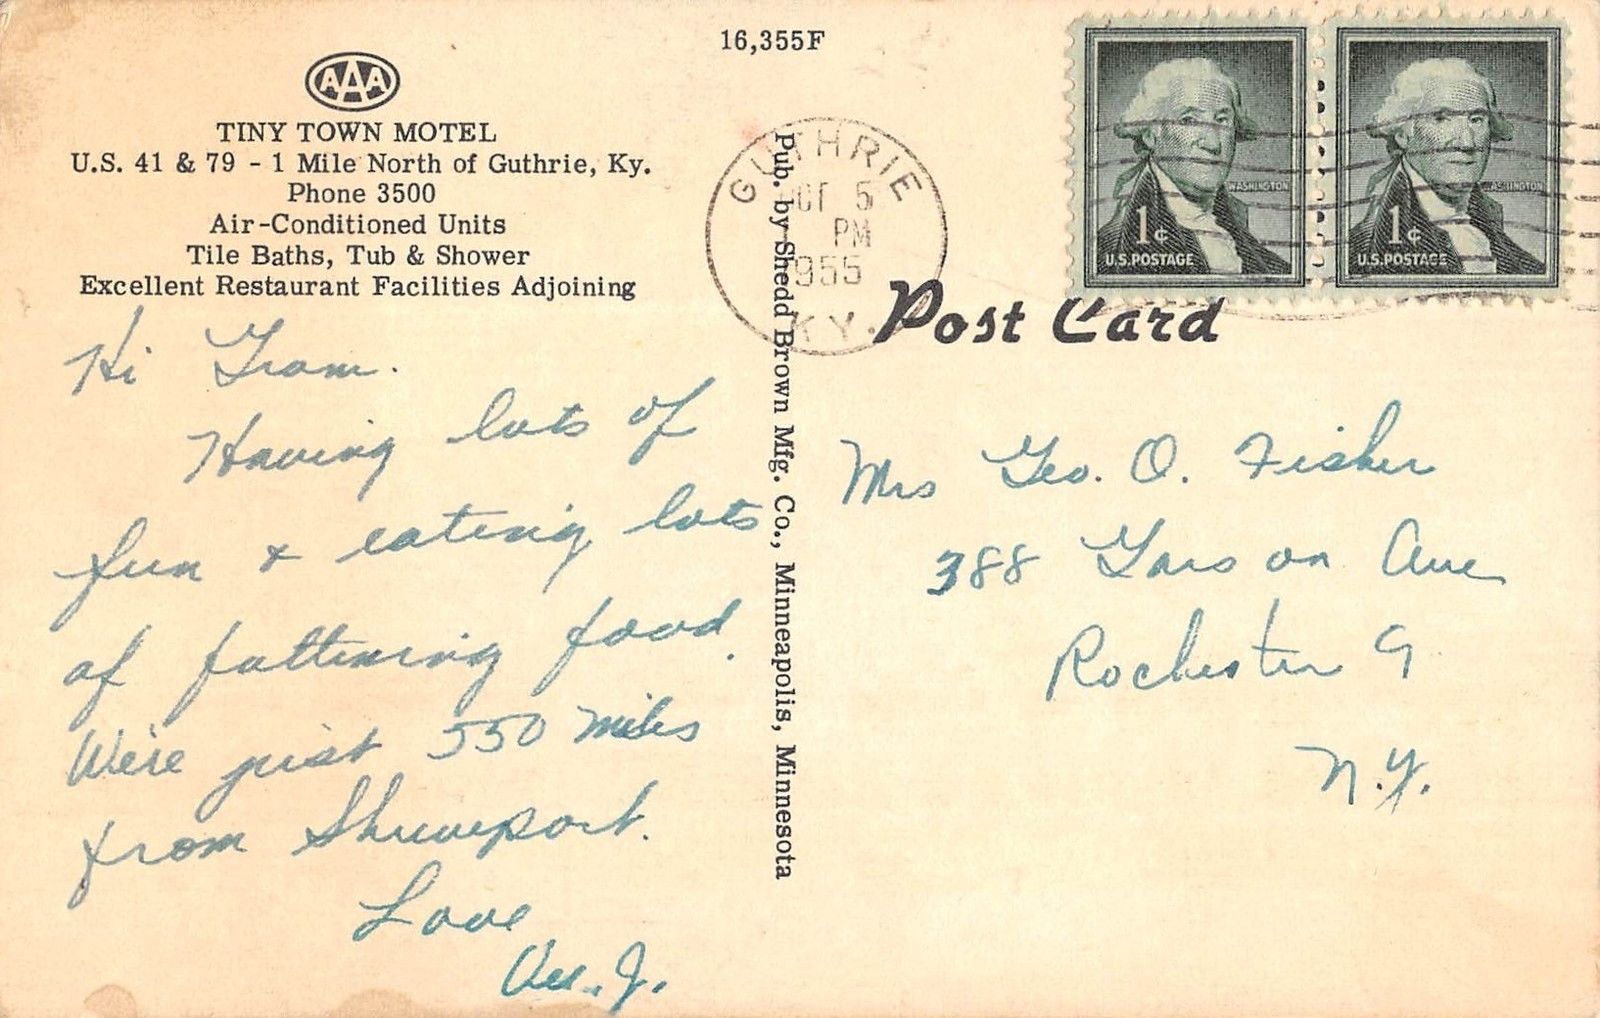 16,355F
AAA
TINY TOWN MOTEL
U.S. 41 & 79 - 1 Mile North of Guthrie, Ky.
Phone 3500
Air-Conditioned Units
Tile Baths, Tub & Shower
Excellent Restaurant Facilities Adjoining
Hi Gram.
Having lots of
fun & eating lots
of fattening food.
We're just 550 miles
from Shreveport.
Love
J.
Pub. by Shedd Brown Mfg. Co., Minneapolis, Minnesota
GUTHRIE
OCT 5
PM
1955
KY.
WASHINGTON
1¢
U.S. POSTAGE
WASHINGTON
1¢
U.S. POSTAGE
Post Card
Mrs Geo. O. Fisher
388 Garson Ave
Rochester 9
N.Y.